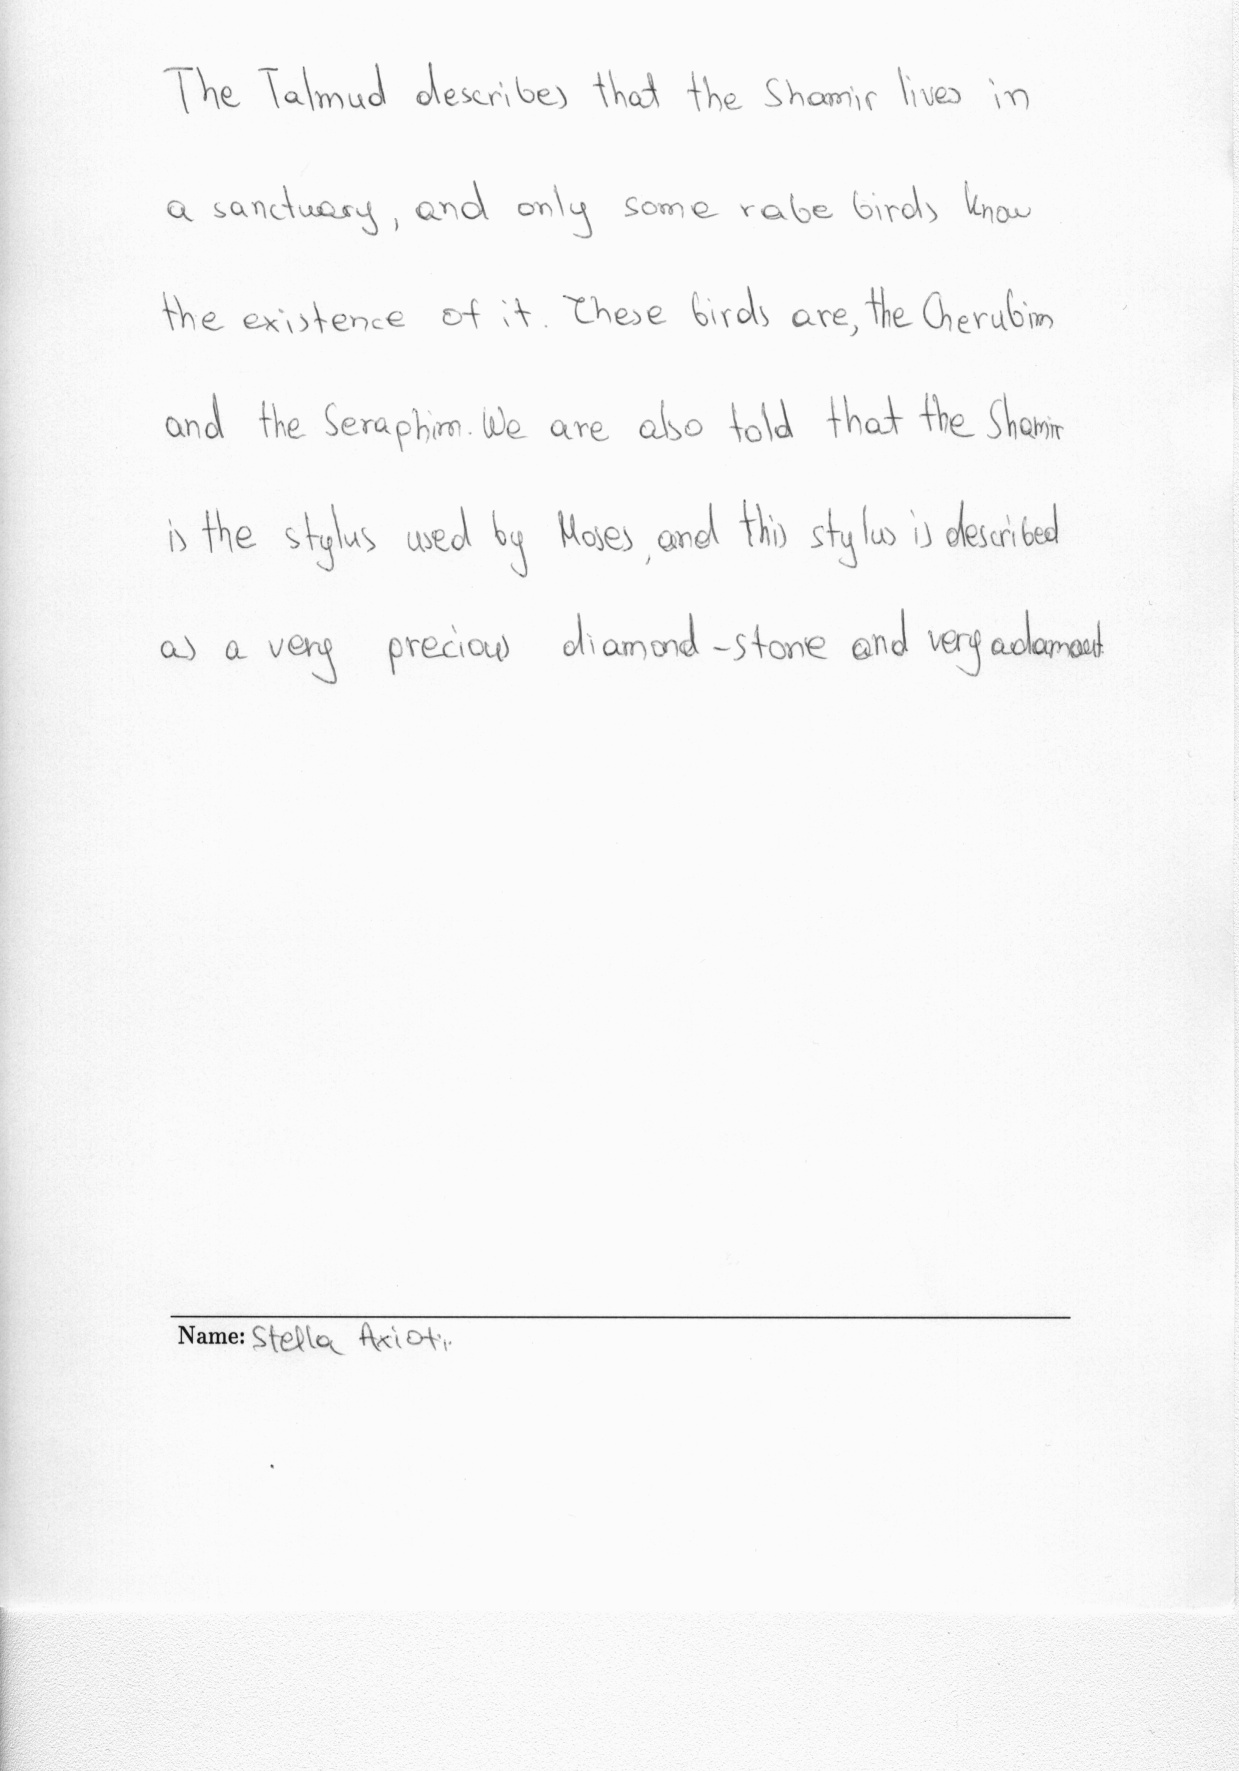 The Talmud describes that the Shamir lives in
a sanctuary, and only some rabe birds know
the existence of it. These birds are, the Cherubim
and the Seraphim. We are also told that the Shamir
is the stylus used by Moses, and this stylus is described
as a very precious diamond-stone and very adamant
Name: Stella Axioti